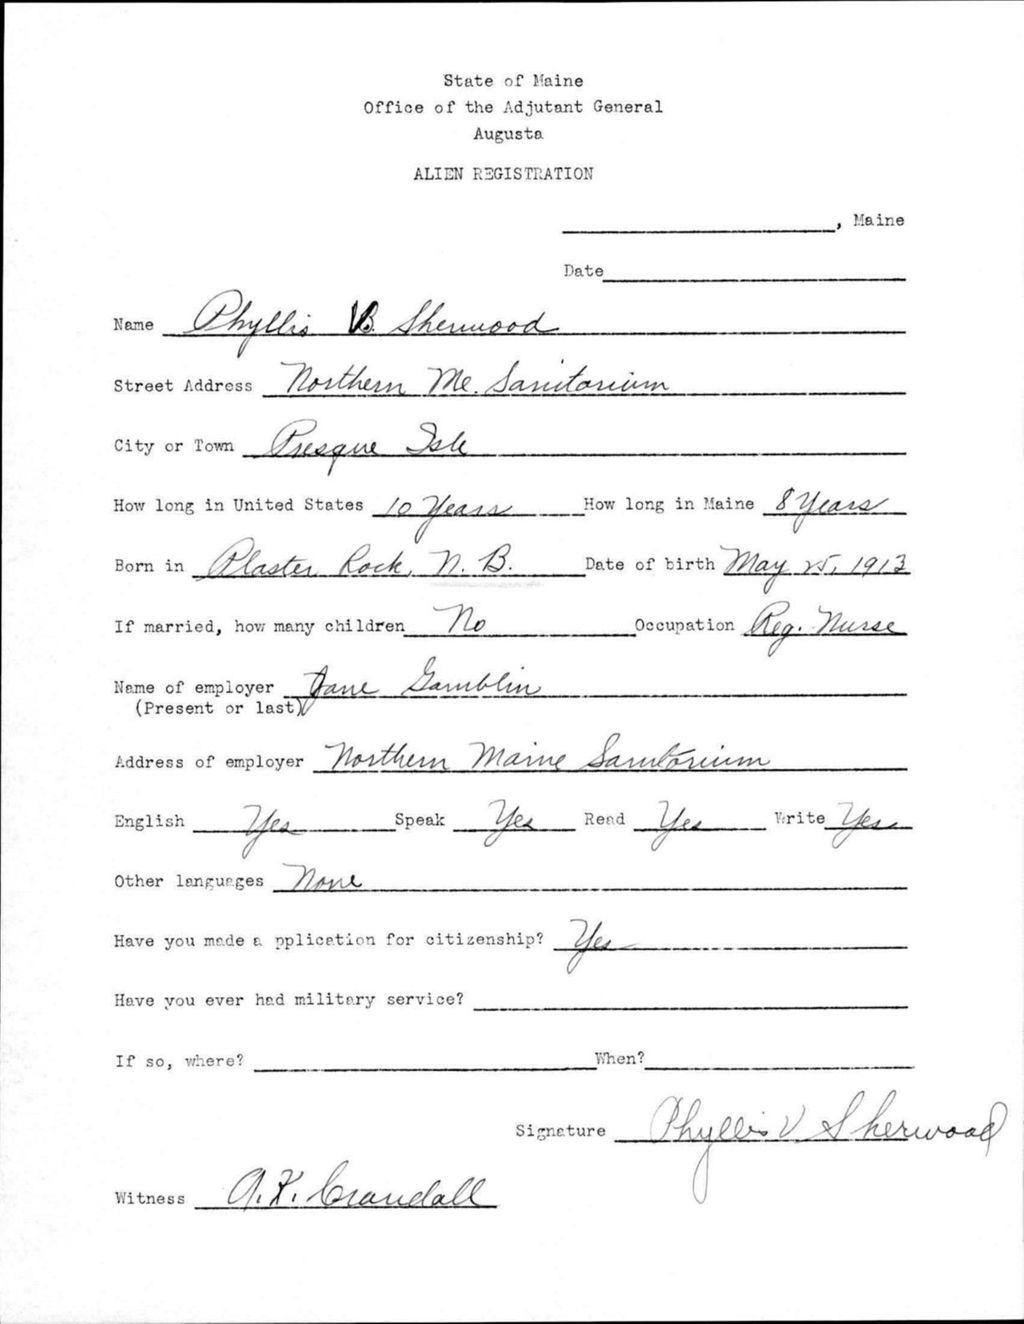 State of Maine
Office of the Adjutant General
Augusta
ALIEN REGISTRATION
, Maine
Date
Name Phyllis V. Sherwood
Street Address Northern Me. Sanitarium
City or Town Presque Isle
How long in United States 10 Years How long in Maine 8 Years
Born in Plaster Rock, N. B. Date of birth May 25, 1913
If married, how many children No Occupation Reg. Nurse
Name of employer Jane Gamblin
(Present or last)
Address of employer Northern Maine Sanitorium
English Yes Speak Yes Read Yes Write Yes
Other languages None
Have you made a pplication for citizenship? Yes
Have you ever had military service?
If so, where? When?
Signature Phyllis V Sherwood
Witness A. K. Crandall